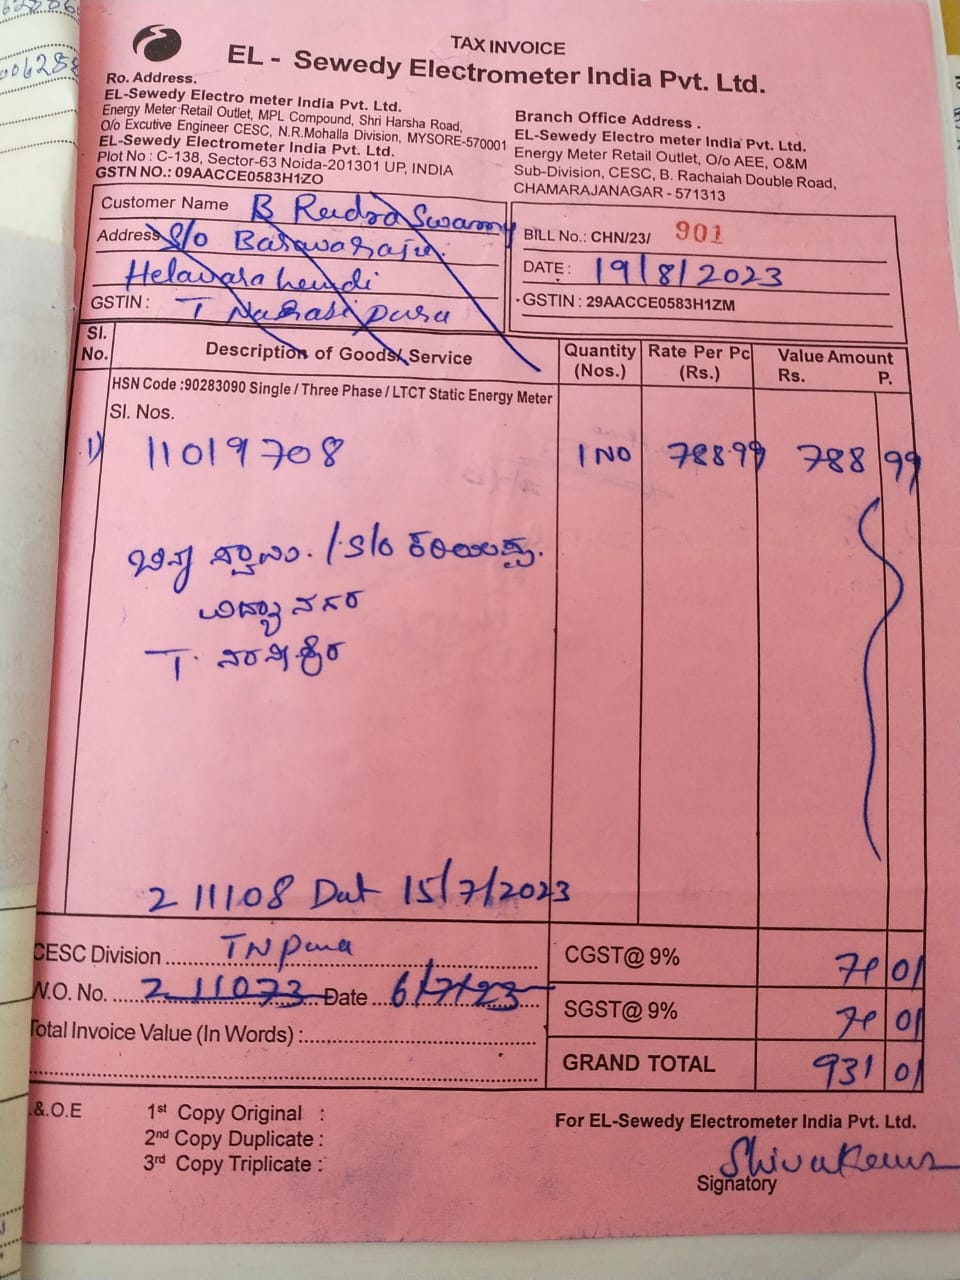 TAX INVOICE
EL - Sewedy Electrometer India Pvt. Ltd.
Ro. Address.
EL-Sewedy Electro meter India Pvt. Ltd.
Energy Meter Retail Outlet, MPL Compound, Shri Harsha Road,
O/o Excutive Engineer CESC, N.R.Mohalla Division, MYSORE-570001
EL-Sewedy Electrometer India Pvt. Ltd.
Plot No : C-138, Sector-63 Noida-201301 UP, INDIA
GSTN NO.: 09AACCE0583H1ZO
Branch Office Address .
EL-Sewedy Electro meter India Pvt. Ltd.
Energy Meter Retail Outlet, O/o AEE, O&M
Sub-Division, CESC, B. Rachaiah Double Road,
CHAMARAJANAGAR - 571313
Customer Name B Rudra Swamy
Address S/o Basavaraju.
Helavarahundi
GSTIN : T Narasipura
BILL No.: CHN/23/ 901
DATE : 19/8/2023
GSTIN : 29AACCE0583H1ZM
Sl. No. Description of Goods/ Service Quantity (Nos.) Rate Per Pc (Rs.) Value Amount Rs. P.
HSN Code :90283090 Single / Three Phase / LTCT Static Energy Meter
Sl. Nos.
1) 11019708 1 NO 788.99 788 99
ಸ್ವಾಮಿ. / S/o
ವಿದ್ಯಾನಗರ
T.
2 11108 Dat 15/7/2023
CESC Division TN pura
W.O. No. 2 11073 Date 6/7/23
Total Invoice Value (In Words) :
CGST@ 9% 71 01
SGST@ 9% 71 01
GRAND TOTAL 931 01
.&.O.E
1st Copy Original :
2nd Copy Duplicate :
3rd Copy Triplicate :
For EL-Sewedy Electrometer India Pvt. Ltd.
Signatory